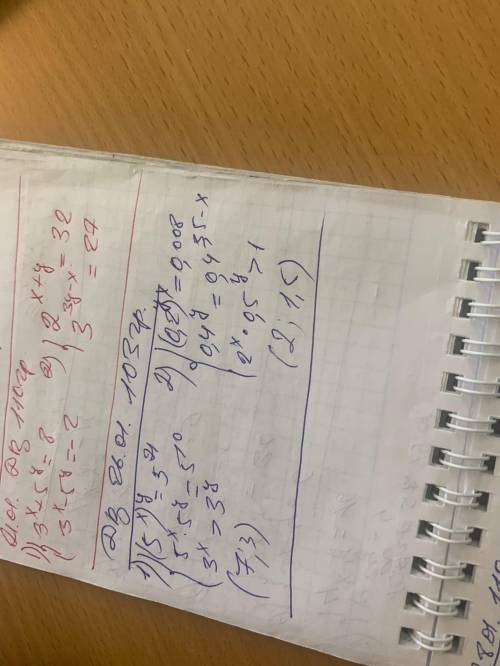 ДЗ 110гр
1) { 3ˣ·5ʸ = 8
3ˣ·5ʸ = -2
2) { 2ˣ⁺ʸ = 32
3³ʸ⁻ˣ = 27
ДЗ 26.01. 103гр.
1) { (5ˣ)ʸ = 5²¹
5ˣ·5ʸ = 5¹⁰
3ˣ > 3ʸ
(7;3)
2) { (0,2ʸ)ˣ = 0,008
0,4ʸ = 0,4³,⁵⁻ˣ
2ˣ·0,5ʸ > 1
(2; 1,5)